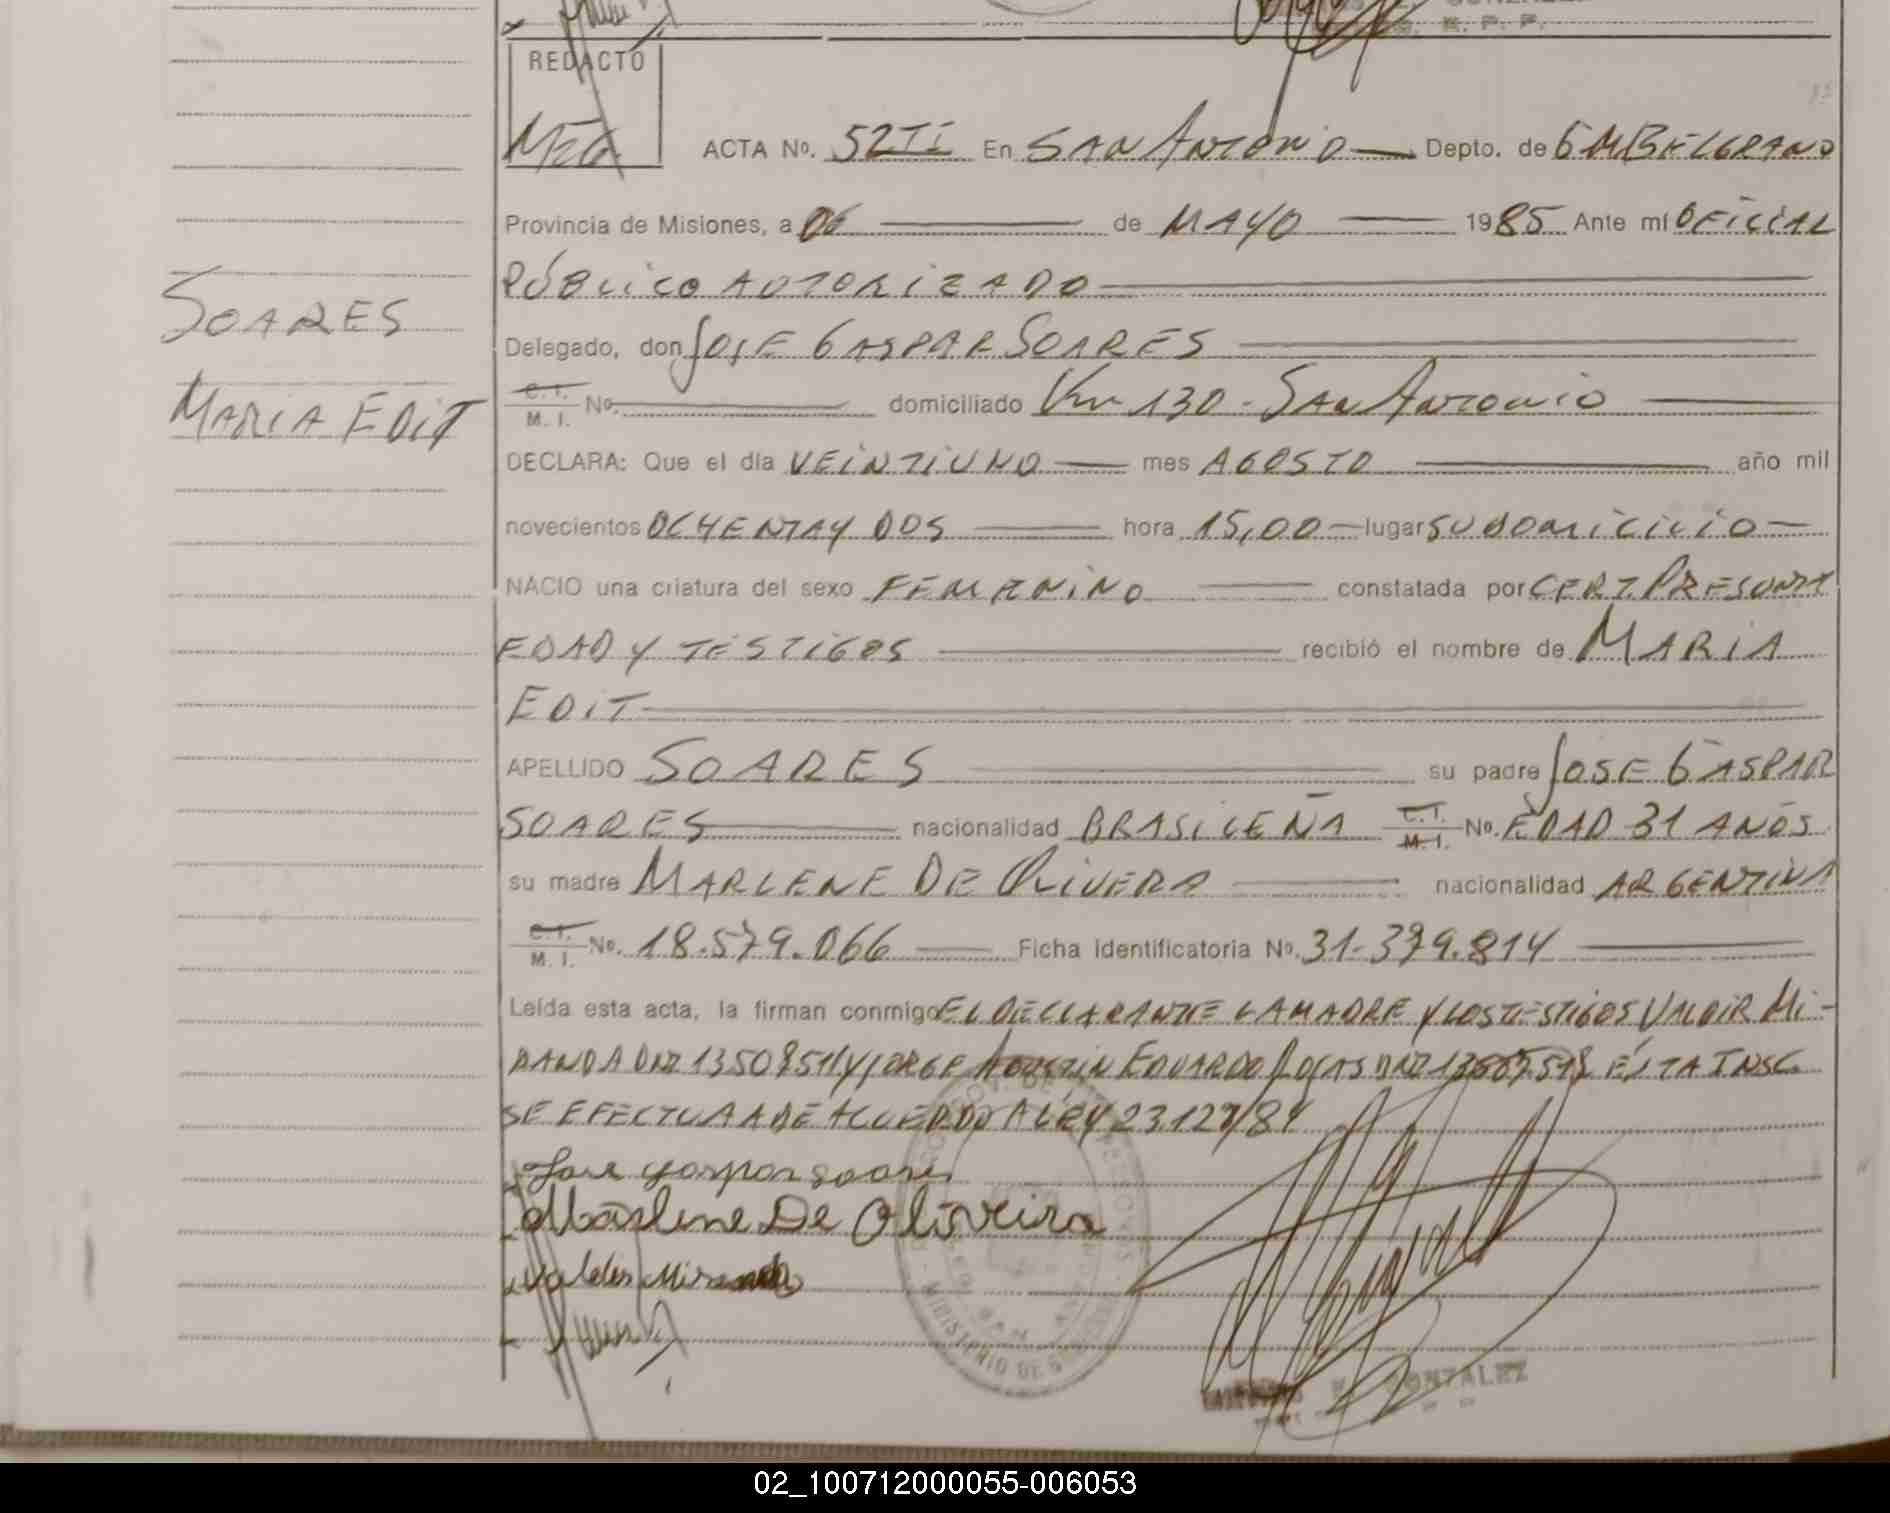 G. E. P. P.
REDACTO
ACTA No. 52TI En SAN ANTONIO Depto. de G M BELGRANO
Provincia de Misiones, a 06 de MAYO 1985 Ante mí OFICIAL
PÚBLICO AUTORIZADO
Delegado, don JOSE GASPAR SOARES
SOARES
C. I. M. I. No. domiciliado Km 130 - SAN ANTONIO
MARIA EDIT
DECLARA: Que el día VEINTIUNO mes AGOSTO año mil
novecientos OCHENTA Y DOS hora 15,00 lugar SU DOMICILIO
NACIO una criatura del sexo FEMENINO constatada por CERT. PRESUNTA
EDAD Y TESTIGOS recibió el nombre de MARIA
EDIT
APELLIDO SOARES su padre JOSE GASPAR
SOARES nacionalidad BRASILEÑA C. I. M. I. No. EDAD 31 AÑOS
su madre MARLENE DE OLIVERA nacionalidad ARGENTINA
C. I. M. I. No. 18.579.066 Ficha Identificatoria No. 31-379.814
Leída esta acta, la firman conmigo EL DECLARANTE LA MADRE Y LOS TESTIGOS VALDIR MI-
RANDA DNI 13508511 Y JORGE AGUSTIN EDUARDO ROJAS DNI ESTA INSC.
SE EFECTUA A DE ACUERDO A LEY 23.127/84
Jose gaspar soares
Marlene De Oliveira
Valdir Miranda
MINISTERIO DE
GONZALEZ
02_100712000055-006053